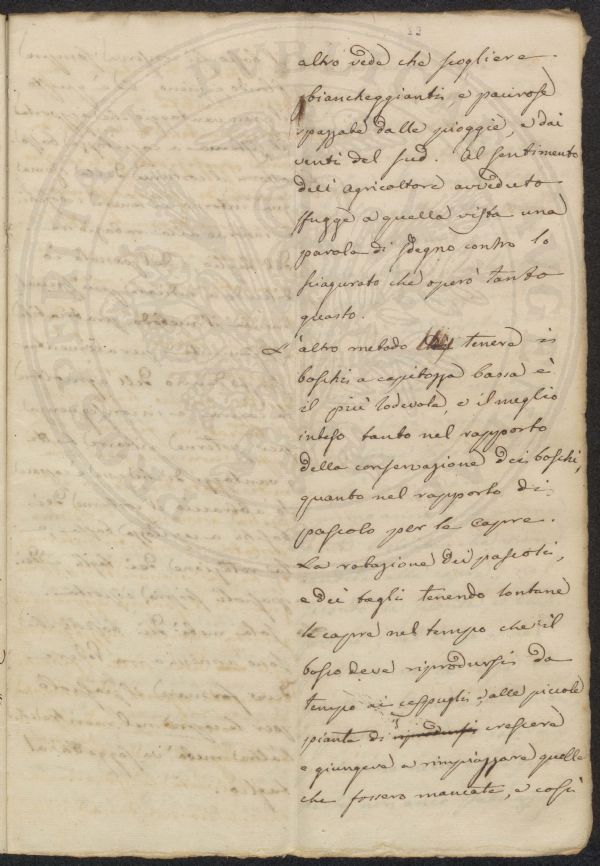 altro vede che scogliere
biancheggianti, e pacirose
spazzate dalle pioggie, e dai
venti del sud. Al sentimento
dell'agricoltore avveduto
sfugge a quella vista una
parola di sdegno contro lo
sciagurato che operò tanto
guasto.
L'altro metodo tenere i
boschi a capitozza bassa è
il più lodevole, e il meglio
inteso tanto nel rapporto
della conservazione dei boschi,
quanto nel rapporto di
pascolo per le capre.
La rotazione dei pascoli,
e dei tagli tenendo lontane
le capre nel tempo che il
bosco deve riprodursi da
tempo ai cespugli, alle piccole
piante di riprodursi crescere
e giungere a rimpiazzare quelle
che fossero mancate, e così